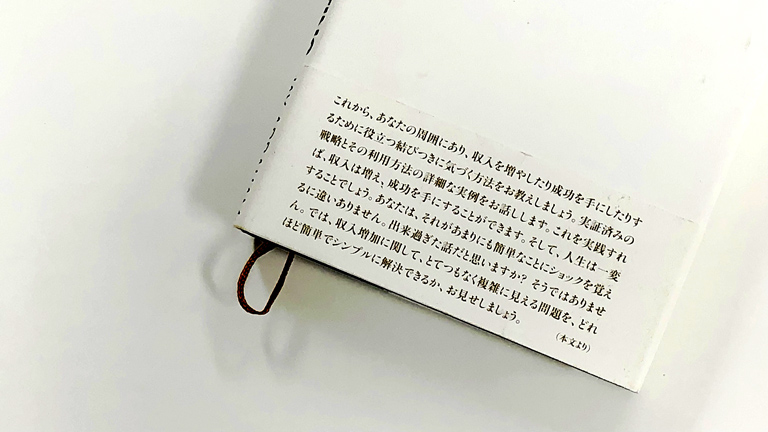 これから、あなたの周囲にあり、収入を増やしたり成功を手にしたりす
るために役立つ結びつきに気づく方法をお教えしましょう。実証済みの
戦略とその利用方法の詳細な実例をお話しします。これを実践すれ
ば、収入は増え、成功を手にすることができます。そして、人生は一変
することでしょう。あなたは、それがあまりにも簡単なことにショックを覚え
るに違いありません。出来過ぎた話だと思いますか? そうではありませ
ん。では、収入増加に関して、とてつもなく複雑に見える問題を、どれ
ほど簡単でシンプルに解決できるか、お見せしましょう。
(本文より)